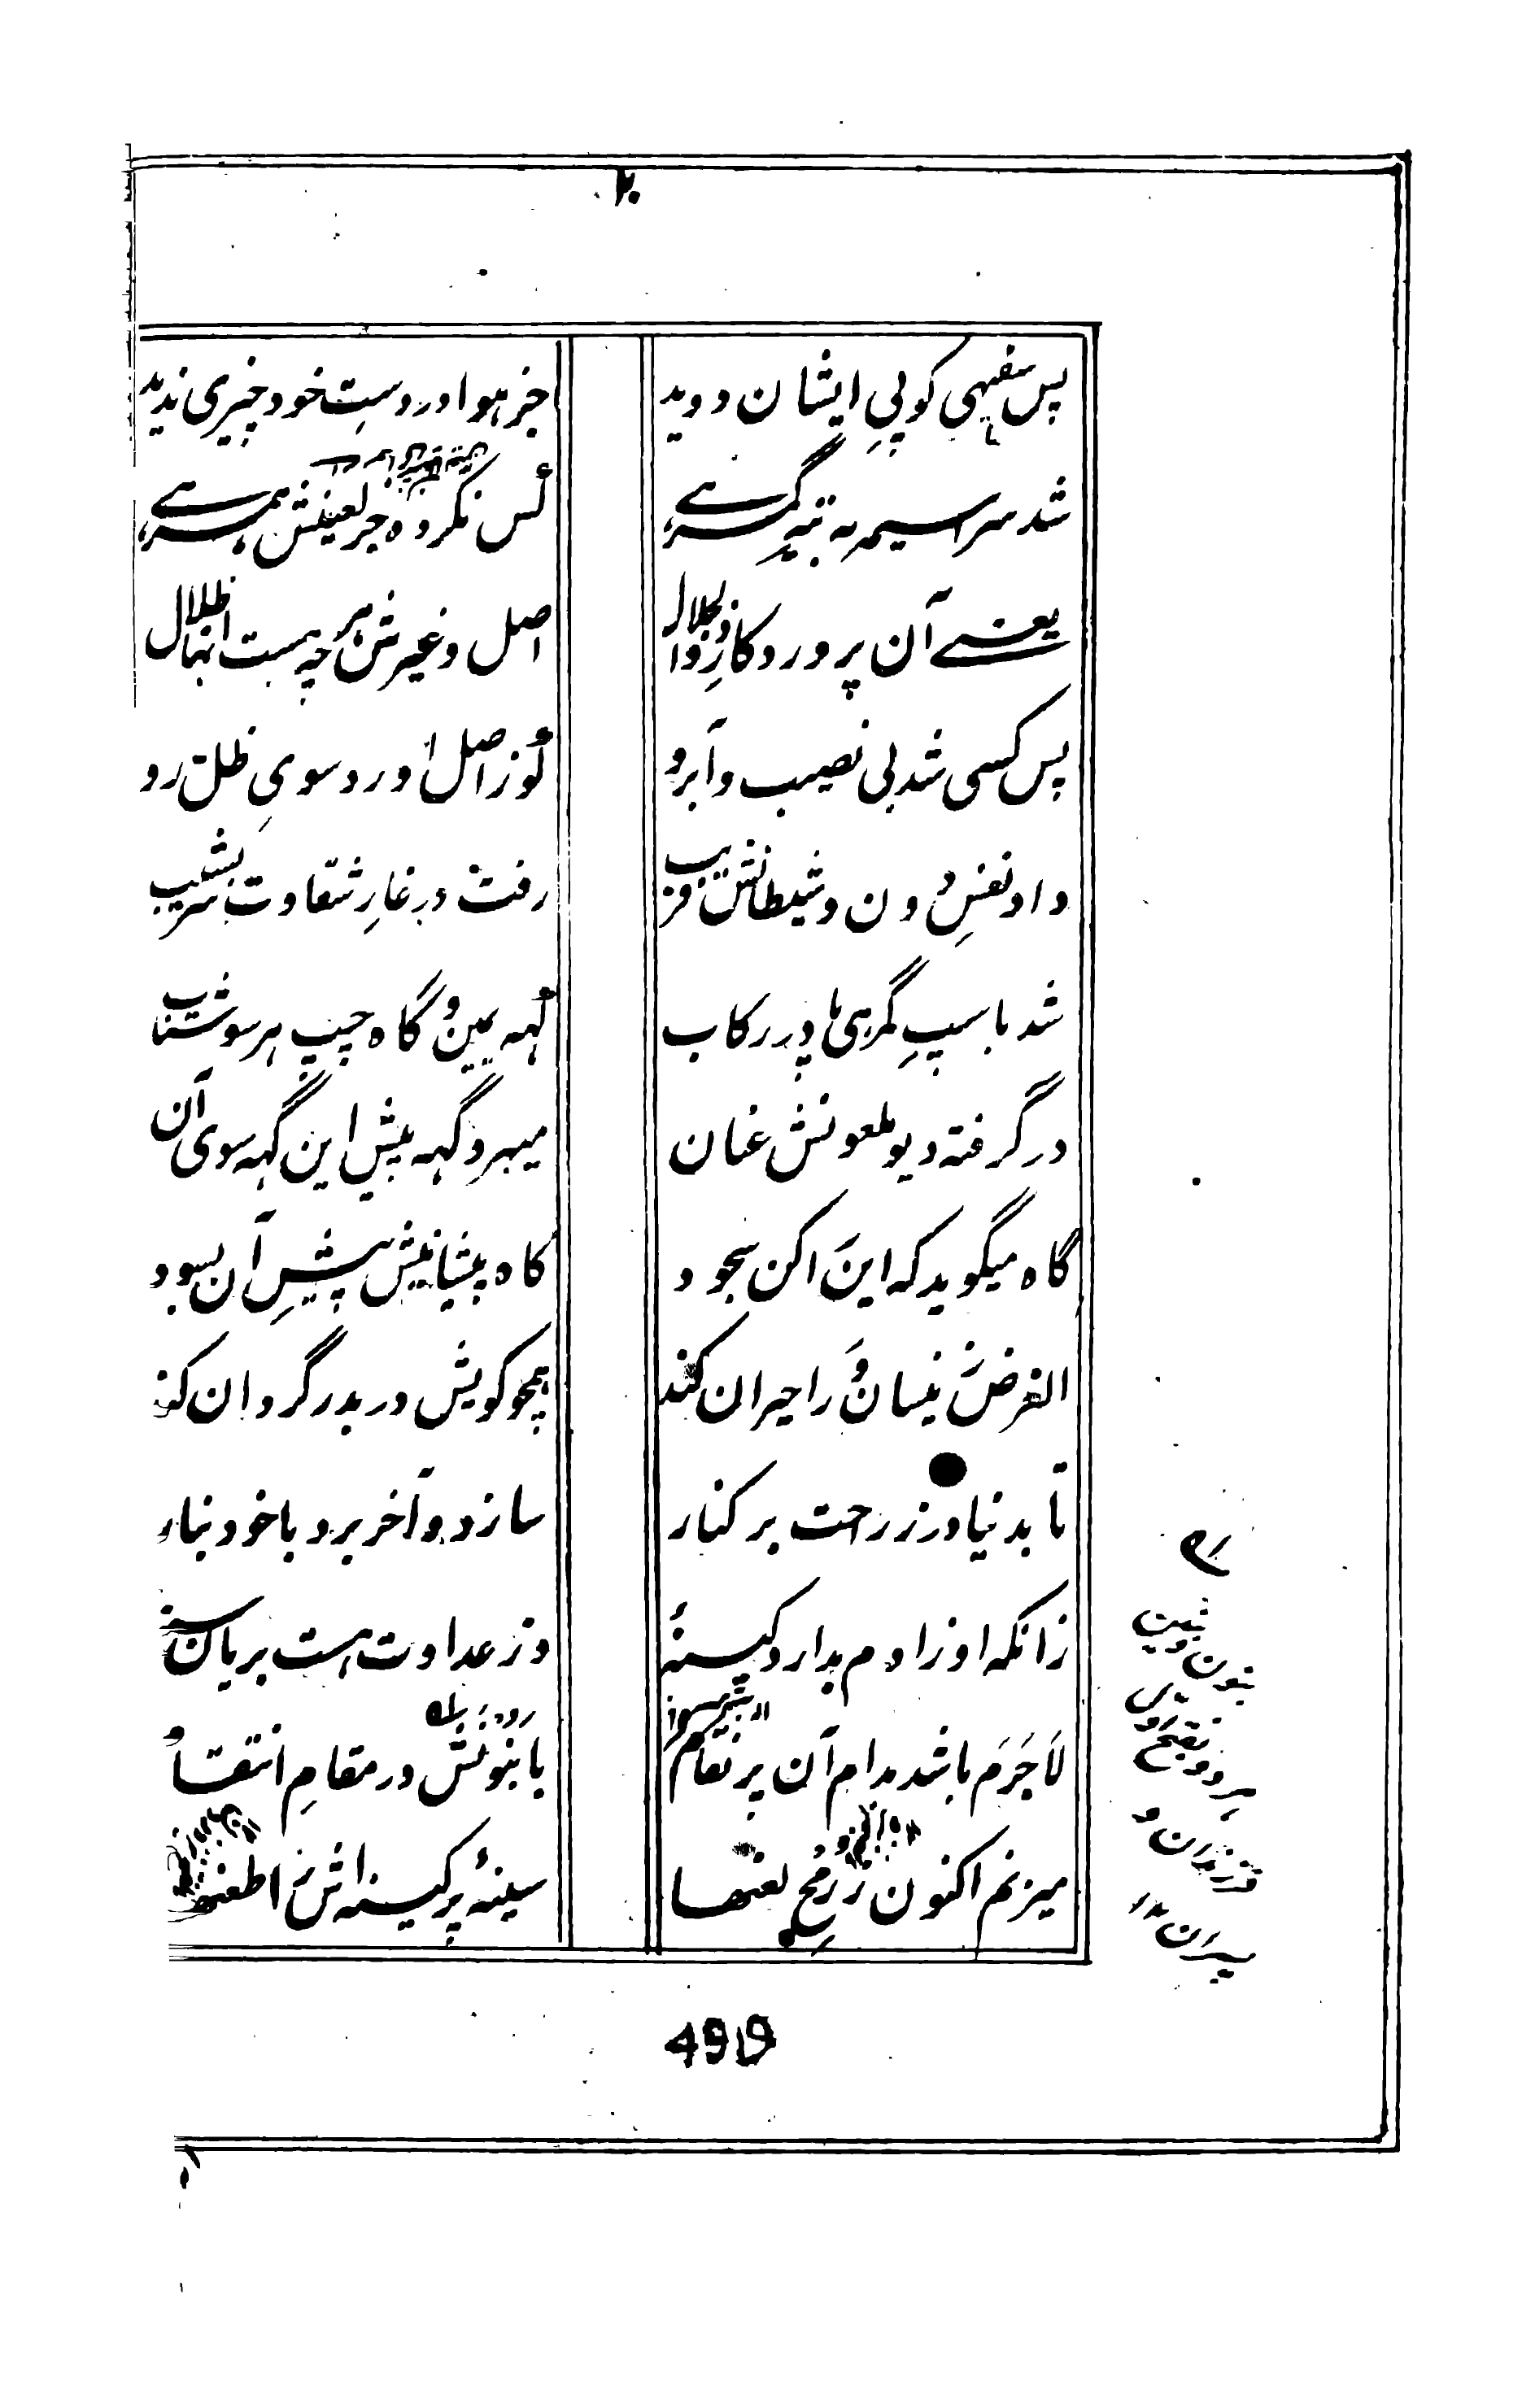 ۲۰
پس سفیهی کو پیِ ایشان دوید
جز هوا در دستِ خود چیزی ندید
شد سراسیمه به تیهِ گمرہے
کس نکرده جز لعینش همرہے
یعنے آن پروردگارِ ذو الجلال
اصل و غیرش هر چه هست انها ظلال
پس کسی شد بی نصیب و آبرو
کو ز اصل آورد سوی ظل رو
داد نفسِ دون و شیطانش فریب
رفت در غارِ شقاوت سر بشیب
شد باسپِ گمرهی پا در رکاب
گه یمین و گاه چپ هر سو شتاب
در گرفته دیو ملعونش عنان
میبرد گہه پیش این گہه سوی آن
گاه میگوید که این را کن سجود
گاه پیشانیش پیشِ آن بسود
الغرض زینسان وُرا حیران کند
همچو گویش در بدر گردان کند
تا بدنیا در ز راحت بر کنار
سازد و آخر برد با خود بنار
زانکه او ز ادم بدارد کینهٔ
وز عداوت هست بریان سینهٔ
لَا جَرَم باشد مدام آن پر نقام
با بنونش در مقامِ انتقام
میزنم اکنون ز رمح لعنها
سینهٔ پر کینه اش را طعنها
بنون
فرزندان و
پسران
4919